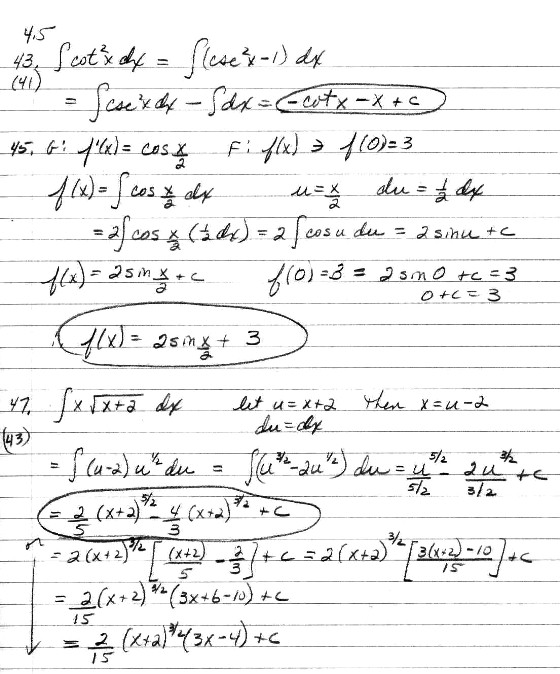 4.5
43. ∫cot²x dx = ∫(csc²x-1) dx
(41)
= ∫csc²x dx - ∫dx = -cotx - x + c
45. G: f'(x) = cos x/2 F: f(x) ∋ f(0)=3
f(x) = ∫ cos x/2 dx u = x/2 du = 1/2 dx
= 2∫cos x/2 (1/2 dx) = 2∫cosu du = 2sinu + c
f(x) = 2sin x/2 + c f(0)=3 = 2sin0 + c = 3
0 + c = 3
f(x) = 2sin x/2 + 3
47. ∫x√(x+2) dx let u = x+2 then x = u-2
(43)
du = dx
= ∫(u-2)u^(1/2) du = ∫(u^(3/2) - 2u^(1/2)) du = u^(5/2)/(5/2) - 2u^(3/2)/(3/2) + c
= 2/5 (x+2)^(5/2) - 4/3 (x+2)^(3/2) + c
or = 2(x+2)^(3/2) [(x+2)/5 - 2/3] + c = 2(x+2)^(3/2) [(3(x+2)-10)/15] + c
= 2/15 (x+2)^(3/2) (3x+6-10) + c
= 2/15 (x+2)^(3/2) (3x-4) + c